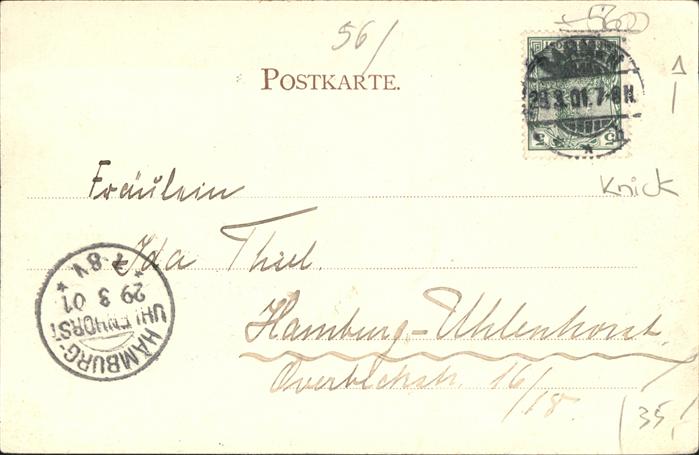 56/
5600
POSTKARTE.
1
28.3.01.7-8N.
5 5
Knick
Fräulein
Ida Thiel.
Hamburg-Uhlenhorst.
Overbeckstr. 16/18.
HAMBURG-
UHLENHORST
29 3 01
7-8V
(35,-